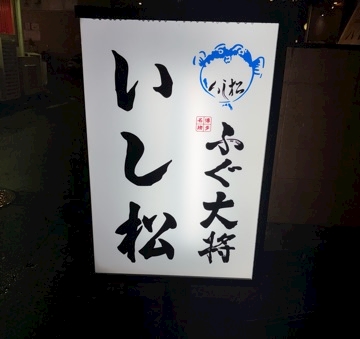 いし松
博多
名物
ふぐ大将
いし松